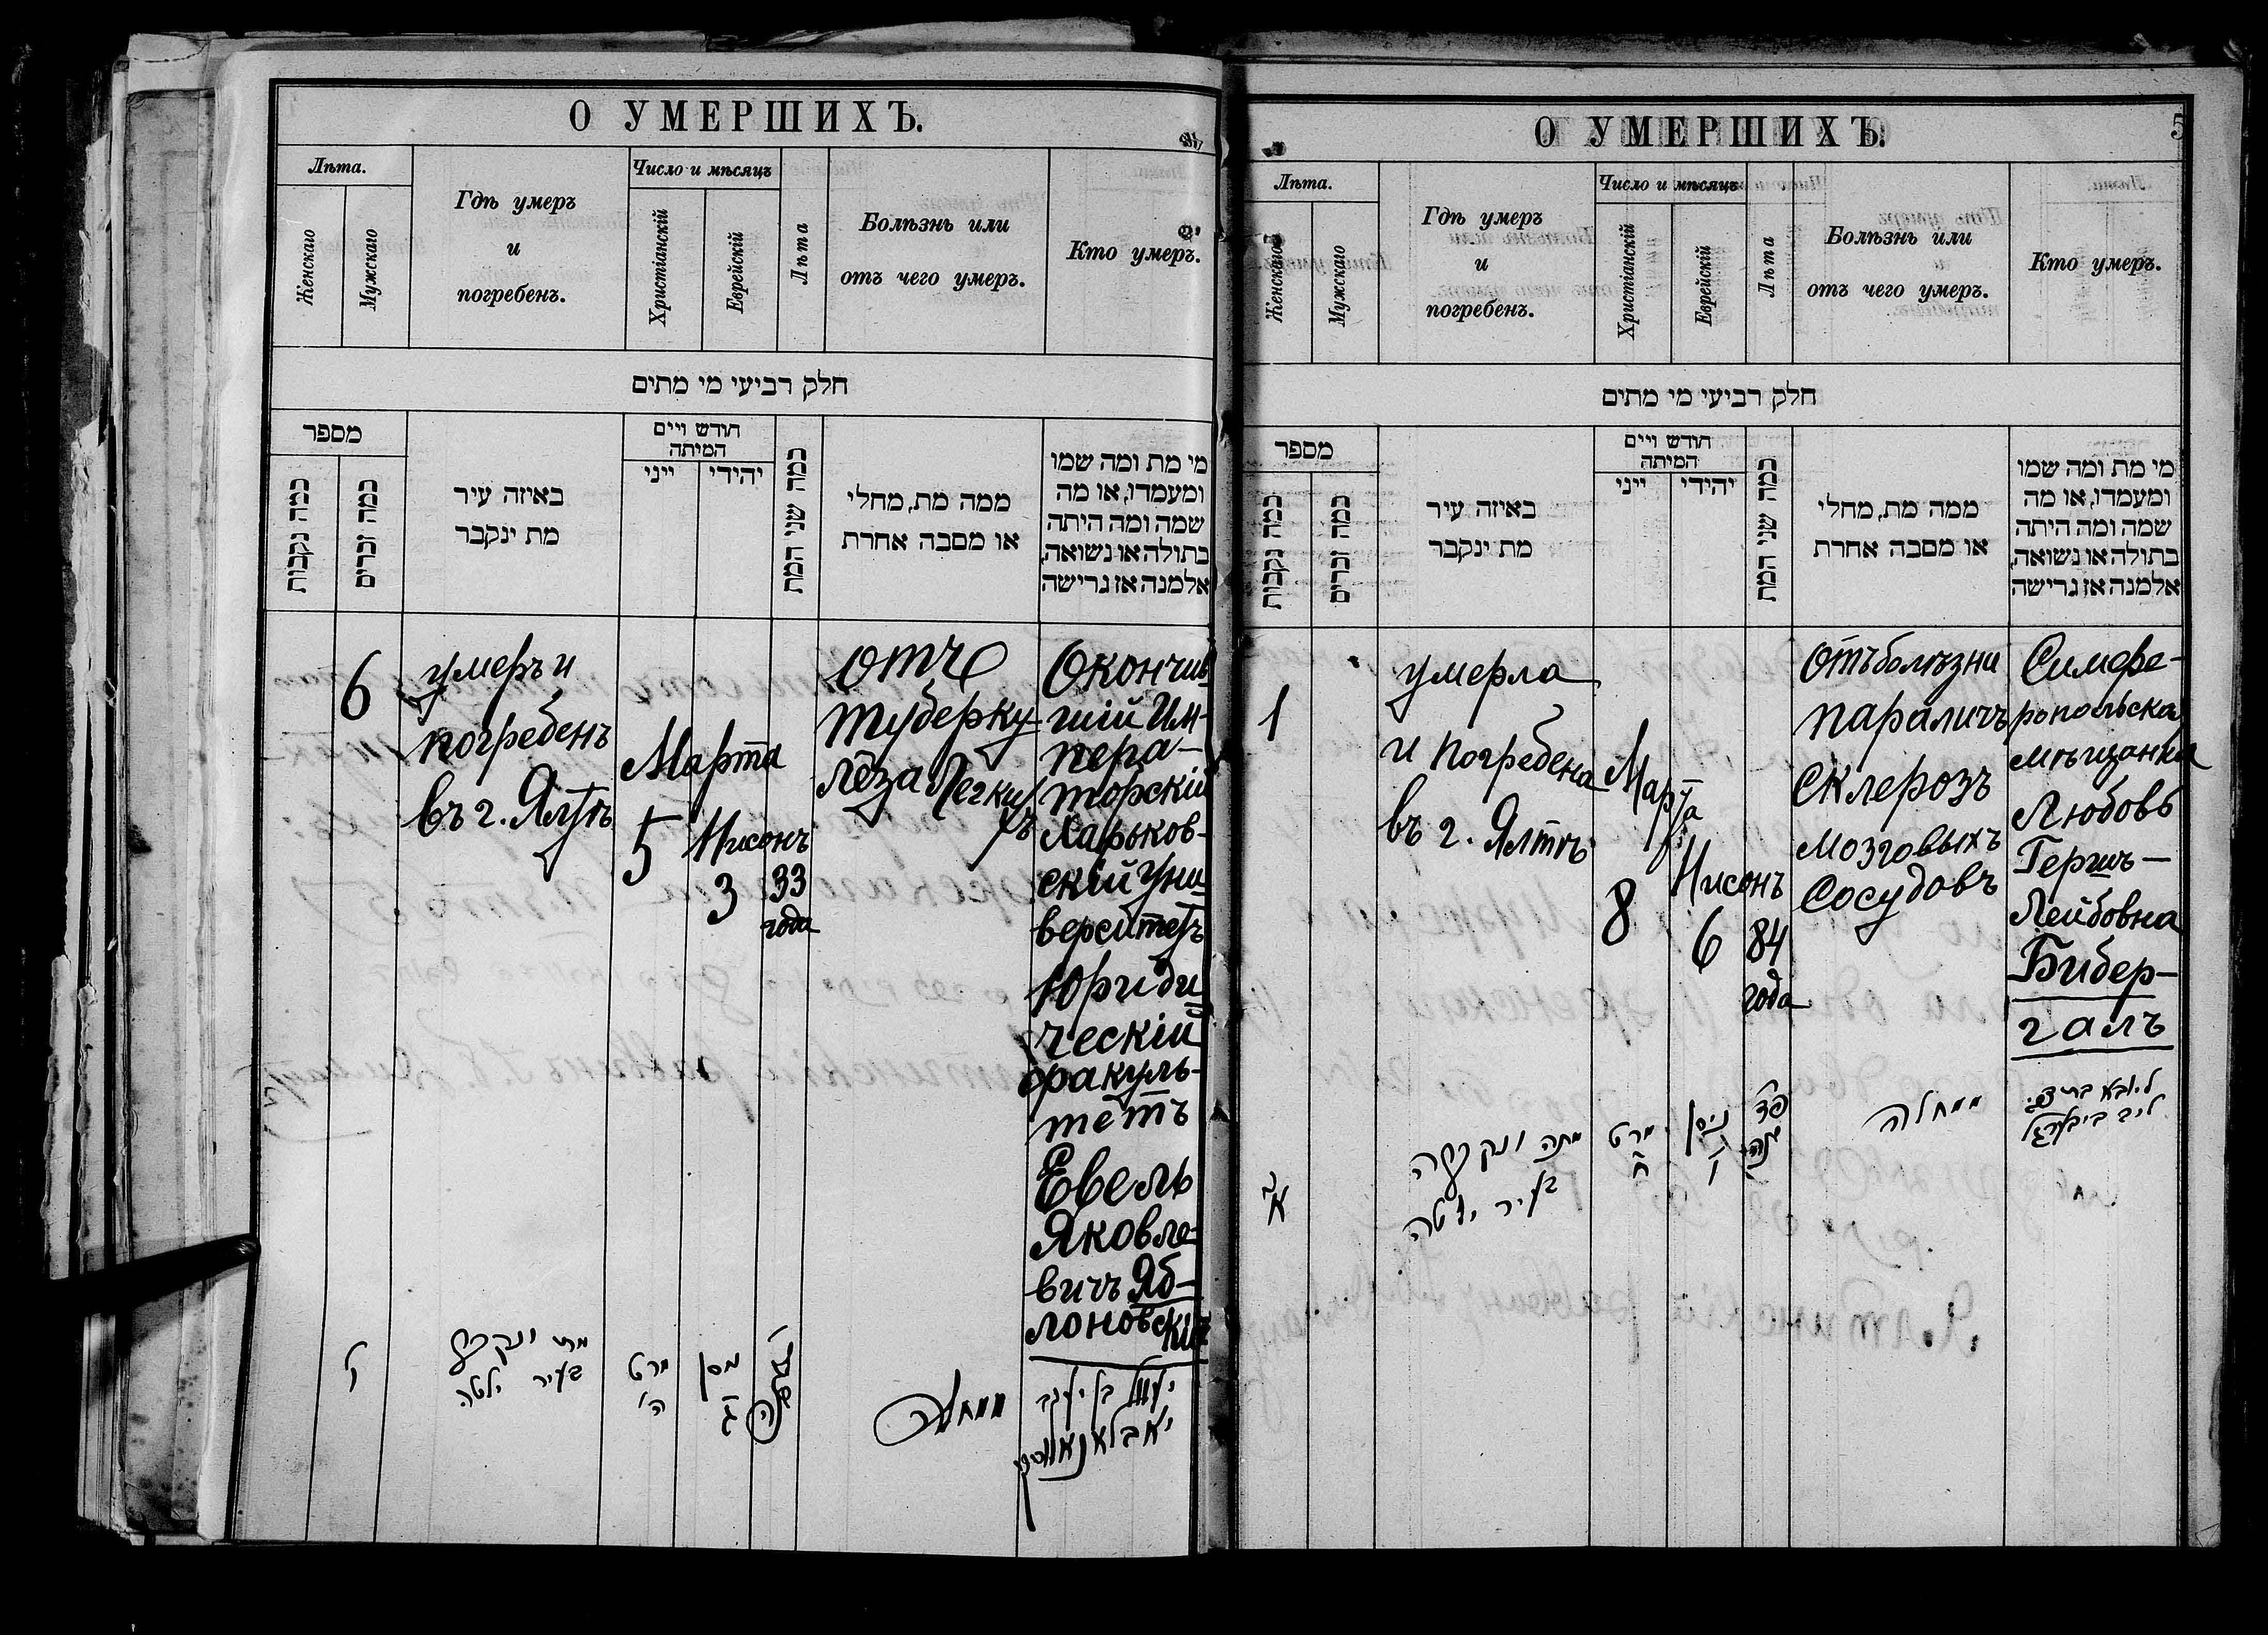 О УМЕРШИХЪ.
Лѣта.
Женскаго
Мужскаго
Гдѣ умеръ
и
погребенъ.
Число и мѣсяцъ
Христіанскій
Еврейскій
Лѣта
Болѣзнь или
отъ чего умеръ.
Кто умеръ.
חלק רביעי מי מתים
מספר
כמה נקבות
כמה זכרים
באיזה עיר
מת ינקבר
חודש ויים
המיתה
ייני
יהידי
כמה שני המת
ממה מת, מחלי
או מסבה אחרת
מי מת ומה שמו
ומעמדו, או מה
שמה ומה היתה
בתולה או נשואה,
אלמנה אז גרישה
6
умеръ и
погребенъ
въ г. Ялтѣ
Марта
5
Нисонъ
3
33
года
отъ
туберку-
леза Легких
ъ
Окончив
шій Им-
пера-
торскій
Харьков-
скій Уни
верситетъ
Юриди
ческій
факуль-
тетъ
Евель
Яковле-
вичъ Яб-
лоновскій
ו
מת ונקבר
בעיר ילטה
מרט
ה'
ניסן
ג
ממחלה
יעוול בן יעקב
יאבלאנאווסקי
О УМЕРШИХЪ.
5
Лѣта.
Женскаго
Мужскаго
Гдѣ умеръ
и
погребенъ.
Число и мѣсяцъ
Христіанскій
Еврейскій
Лѣта
Болѣзнь или
отъ чего умеръ.
Кто умеръ.
חלק רביעי מי מתים
מספר
כמה נקבות
כמה זכרים
באיזה עיר
מת ינקבר
חודש ויים
המיתה
ייני
יהידי
כמה שני המת
ממה מת, מחלי
או מסבה אחרת
מי מת ומה שמו
ומעמדו, או מה
שמה ומה היתה
בתולה או נשואה,
אלמנה אז גרישה
1
умерла
и погребена
въ г. Ялтѣ
Марта
8
Нисонъ
6
84
года
отъ болѣзни
параличъ
склерозъ
мозговыхъ
сосудовъ
Симфе-
ропольская
мѣщанка
Любовь
Гершъ-
Лейбовна
Бибер-
галъ
א
מתה ונקברה
בעיר ילטה
מרט
ח
ניסן
ו
פד
שנה
ממחלה
ליובא בת צבי
ליב ביבערגל